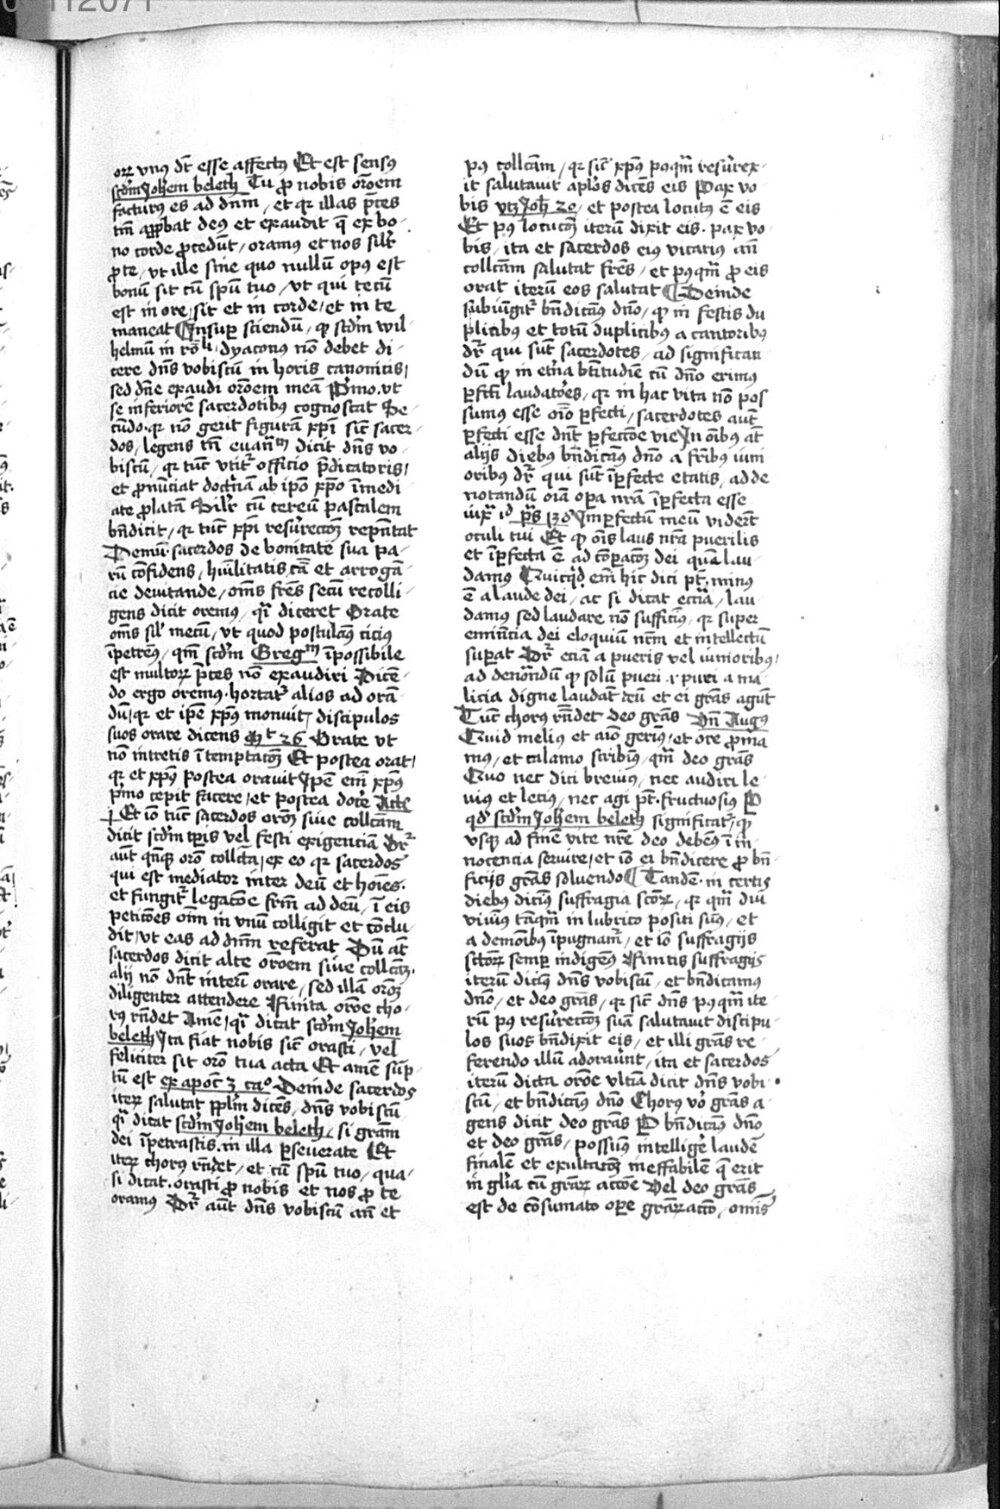 orꝝ vnus dꝫ esse affectus Et est sensus
scd̄m Joh̄em beleth Tu ꝓ nobis or̄oem
facturus es ad dn̄m / et qꝛ illas p̄ces
tm̄ apꝓbat deus et exaudit q̄ ex bo-
no corde ꝓcedūt / oramus et nos silr̄
ꝓ te / vt ille sine quo nullū opus est
bonū sit cū spū tuo / vt qui tecū
est in ore / sit et in corde / et in te
maneat ¶ Insuꝑ sciendū / ꝙ scd̄m wil-
helmū in dyaconus nō debet di-
cere dn̄s vobiscū in horis canonicis /
sed dn̄e exaudi or̄oem meā P̄mo vt
se inferiorē sacerdotibus cognoscat Se-
cūdo qꝛ nō gerit figurā xp̄i sic̄ sacer-
dos / legens tn̄ euan̄ dicit dn̄s vo-
biscū / qꝛ tūc vtit̄ officio p̄dicatoris /
et ꝓnūciat doctrinā ab ip̄o xp̄o īmedi-
ate ꝓlatā Silr̄ cū cereū pascalem
bn̄dicit / qꝛ tūc xp̄i resurrectōꝫ rep̄ntat
Demū sacerdos de bonitate sua pa-
rū cōfidens / hūilitatis cā et arrogā-
cie deuitande / om̄s fr̄es secū recolli-
gens dicit oremus / q̄i diceret Orate
om̄s sil̄ mecū / vt quod postulāꝫ cicius
īpetrem̄ / qm̄ scd̄m Greg īpossibile
est multorꝝ p̄ces nō exaudiri Dicē-
do ergo oremus hortat̄ alios ad orā-
dū / qꝛ et ip̄e xp̄us monuit discipulos
suos orare dicens Mt 26 Orate vt
nō intretis ī temptacōꝫ Et postea orat /
qꝛ et xp̄us postea orauit Ip̄e em̄ xp̄us
p̄mo cepit facere / et postea docē Act
j Et iō tūc sacerdos orōꝫ siue collcām
dicit scd̄m tp̄is vel festi exigenciā Dr̄
aūt or̄o collcta / ex eo qꝛ sacerdos
qui est mediator inter deū et hoīes
et fungit̄ legacōe frm̄ ad deū / ī eis
peticōes oīm in vnū colligit et cōclu-
dit / vt eas ad dn̄m referat Dū aūt
sacerdos dicit alte or̄oem siue collcāꝫ
alij nō dn̄t interū orare / sed illā orōꝫ
diligenter attendere Finita or̄oe cho-
rus rn̄det Amē / q̄i dicat scd̄m Joh̄em
beleth Ita fiat nobis sic̄ orasti / vel
feliciter sit or̄o tua acta Et amē sūp-
tū est ex apoc̄ 3 cao Deinde sacerdos
iterꝝ salutat pplm̄ dicēs / dn̄s vobiscū
q̄i dicat scd̄m Joh̄em beleth / si grām
dei īpetrastis in illa ꝑseuerate Et
iterꝝ chorus rn̄det / et cū spū tuo / qua-
si dicat orasti ꝓ nobis et nos ꝓ te
oramus Dr̄ aūt dn̄s vobiscū an̄ et
pꝰ collcām / qꝛ sic̄ xp̄us pꝰqm̄ resurrex-
it salutauit aplōs dicēs eis Pax vo
bis vtꝫ Joh̄ 20 / et postea locutus ē eis
Et pꝰ locucōꝫ iterū dixit eis pax vo-
bis / ita et sacerdos eius vicarius an̄
collcām salutat fr̄es / et pꝰqm̄ ꝓ eis
orat iterū eos salutat ¶ Deinde
subiūgit̄ bn̄dicamꝰ dn̄o / ꝙ in festis du
plicibus et totū duplicibus a cantoribus
dr̄ qui sūt sacerdotes / ad significan
dū ꝙ in et̄na btītudīe cū dn̄o erimus
ꝑfcti laudatores / qꝛ in hac vita nō pos
sumus esse oīo ꝑfecti / sacerdotes aūt
ꝑfecti esse dn̄t ꝑfectōe vie In oībus aūt
alijs diebus bn̄dicamꝰ dn̄o a fr̄ibus iuni
oribus dr̄ qui sūt īꝑfecte etatis / ad de
notandū oīa oꝑa nr̄a īꝑfecta esse
iux̄ id p̄s 138 Imꝑfectū meū viderūt
oculi tui Et ꝙ oīs laus nr̄a puerilis
et īꝑfecta ē ad cōꝑacōꝫ dei quā lau-
damus Quicqd em̄ hic dici pt̄ minus
ē a laude dei / ac si dicat eccīa / lau-
damus sed laudare nō sufficimꝰ / qꝛ super
eminēcia dei eloquiū nr̄m et intellectū
suꝑat Dr̄ eciā a pueris vel iunioribus /
ad denotandū ꝙ solū pueri .i. puri a ma
licia digne laudāt deū et ei grās agūt
Tūc chorus rn̄det deo grās Vn̄ Augꝰ
Quid melius et aīo gerimꝰ / et ore ꝓma
mus / et calamo scribimꝰ / qm̄ deo grās
Quo nec dici breuius / nec audiri le
uius et lecius / nec agi pt̄ fructuosius P
qd̄ scd̄m Joh̄em beleth significat̄ / ꝙ
vsꝗ ad finē vite nr̄e deo debemꝰ ī in
nocencia seruire / et iō ei bn̄dicere ꝓ bn̄-
ficijs grās soluendo ¶ Tandē in certis
diebus dicimꝰ suffragia sctōꝝ / qꝛ qm̄ diu
viuimꝰ tāqm̄ in lubrico positi sumꝰ / et
a demōibus īpugnamr̄ / et iō suffragijs
sctōꝝ semꝑ indigemꝰ Finitis suffragijs
iterū dicimꝰ dn̄s vobiscū / et bn̄dicamus
dn̄o / et deo grās / qꝛ sic̄ dn̄s pꝰqm̄ ite-
rū pꝰ resurrectōꝫ suā salutauit discipu-
los suos bn̄dixit eis / et illi grās re-
ferendo illū adorauūt / ita et sacerdos
iterū dicta or̄oe vltīa dicit dn̄s vobi-
scū / et bn̄dicamꝰ dn̄o Chorus vō grās a-
gens dicit deo grās P bn̄dicamꝰ dn̄o
et deo grās / possumꝰ intelligē laudē
finalē et exultacōꝫ ineffabilē q̄ erit
in glīa cū grāꝝ accōe Vel deo grās
est de cōsumato oꝑe grāꝝ accō / omīs